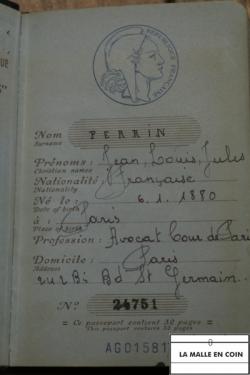 que
RÉPUBLIQUE FRANÇAISE
Nom PERRIN
Surname
Prénoms : Jean, Louis, Jules
Christian names
Nationalité Française
Nationality
Né le : 6.1.1880
Date of birth
à : Paris
Place of birth
Profession : Avocat Cour de Paris
Domicile : Paris
Address
212 Bis Bd St Germain.
N° 24751
= Ce passeport contient 32 pages =
This passport contains 32 pages
AG01581
LA MALLE EN COIN